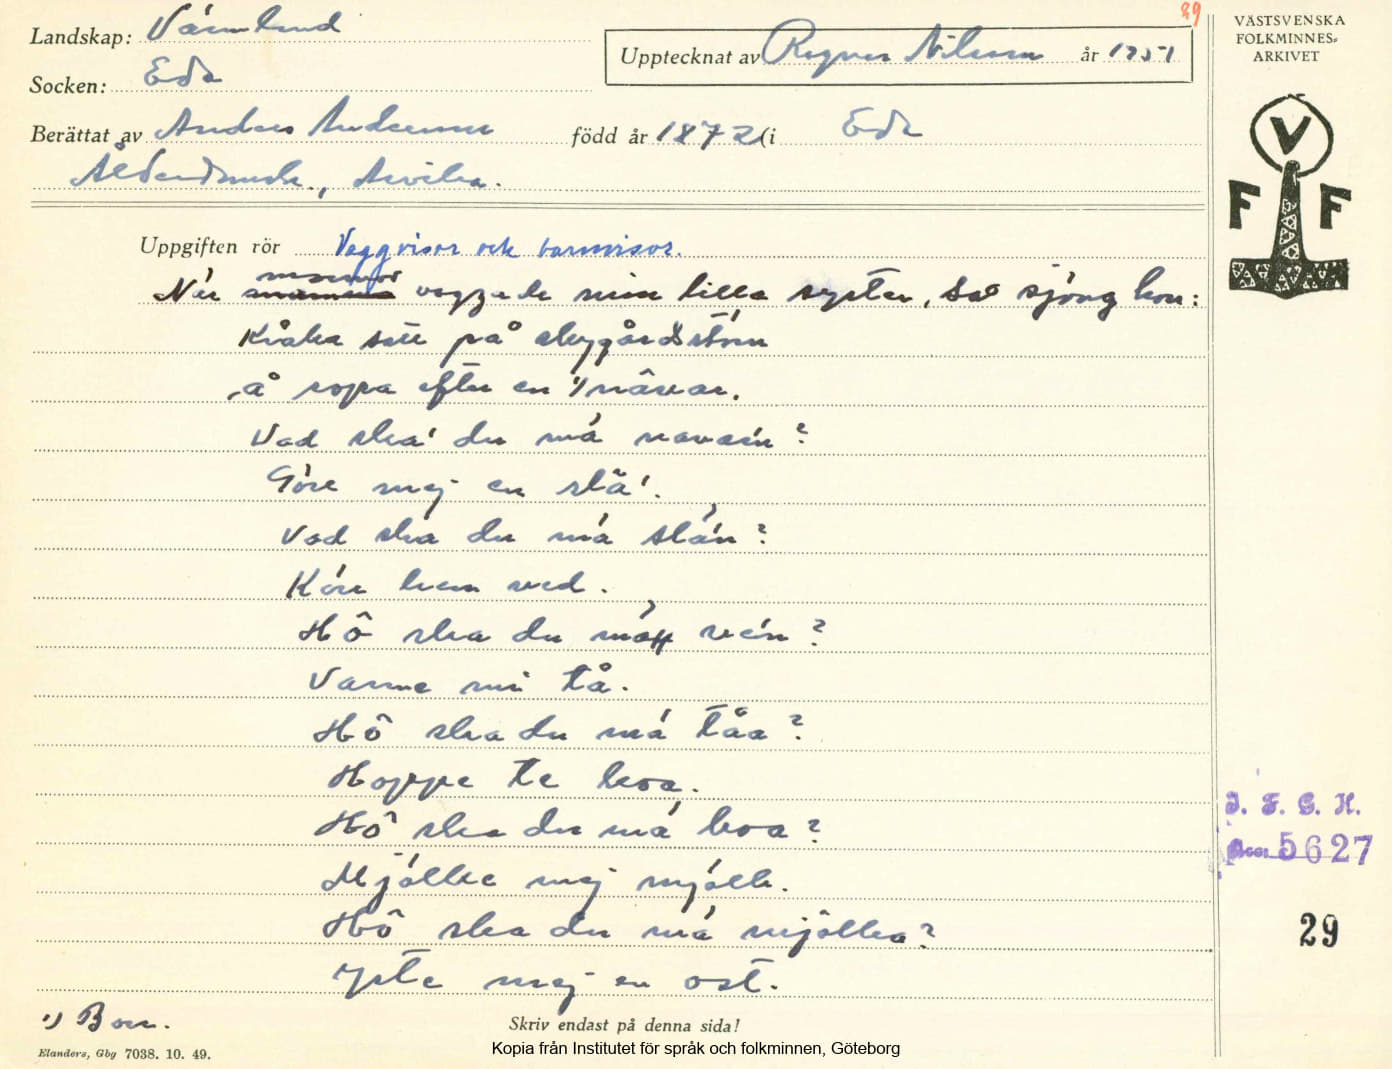 29
Landskap: Värmland
Socken: Eda
Upptecknat av Ragnar Nilsson år 1951
Berättat av Anders Andersson född år 1872 (i Eda
Ålderdomsh., Arvika.
VÄSTSVENSKA
FOLKMINNES-
ARKIVET
V
F F
Uppgiften rör Vaggvisor och barnvisor.
mormor
När mamma vaggade min lilla syster, så sjöng hon:
Kråka satt på skygårdstörn
å ropa efter en 1) nåvar.
Vad ska' du mä navarn?
Göre mej en slä'.
Vad ska du mä slän?
Köre hem ved.
Hô ska du mä ve'n?
Varme mi tå.
Hô ska du mä tåa?
Hoppe te koa.
Hô ska du mä koa?
Mjölke mej mjölk.
Hô ska du mä mjölka?
Yste mej en ost.
1) Borr.
Skriv endast på denna sida!
Elanders, Gbg 7038. 10. 49.
Kopia från Institutet för språk och folkminnen, Göteborg
I. F. G. H.
Acc. 5627
29